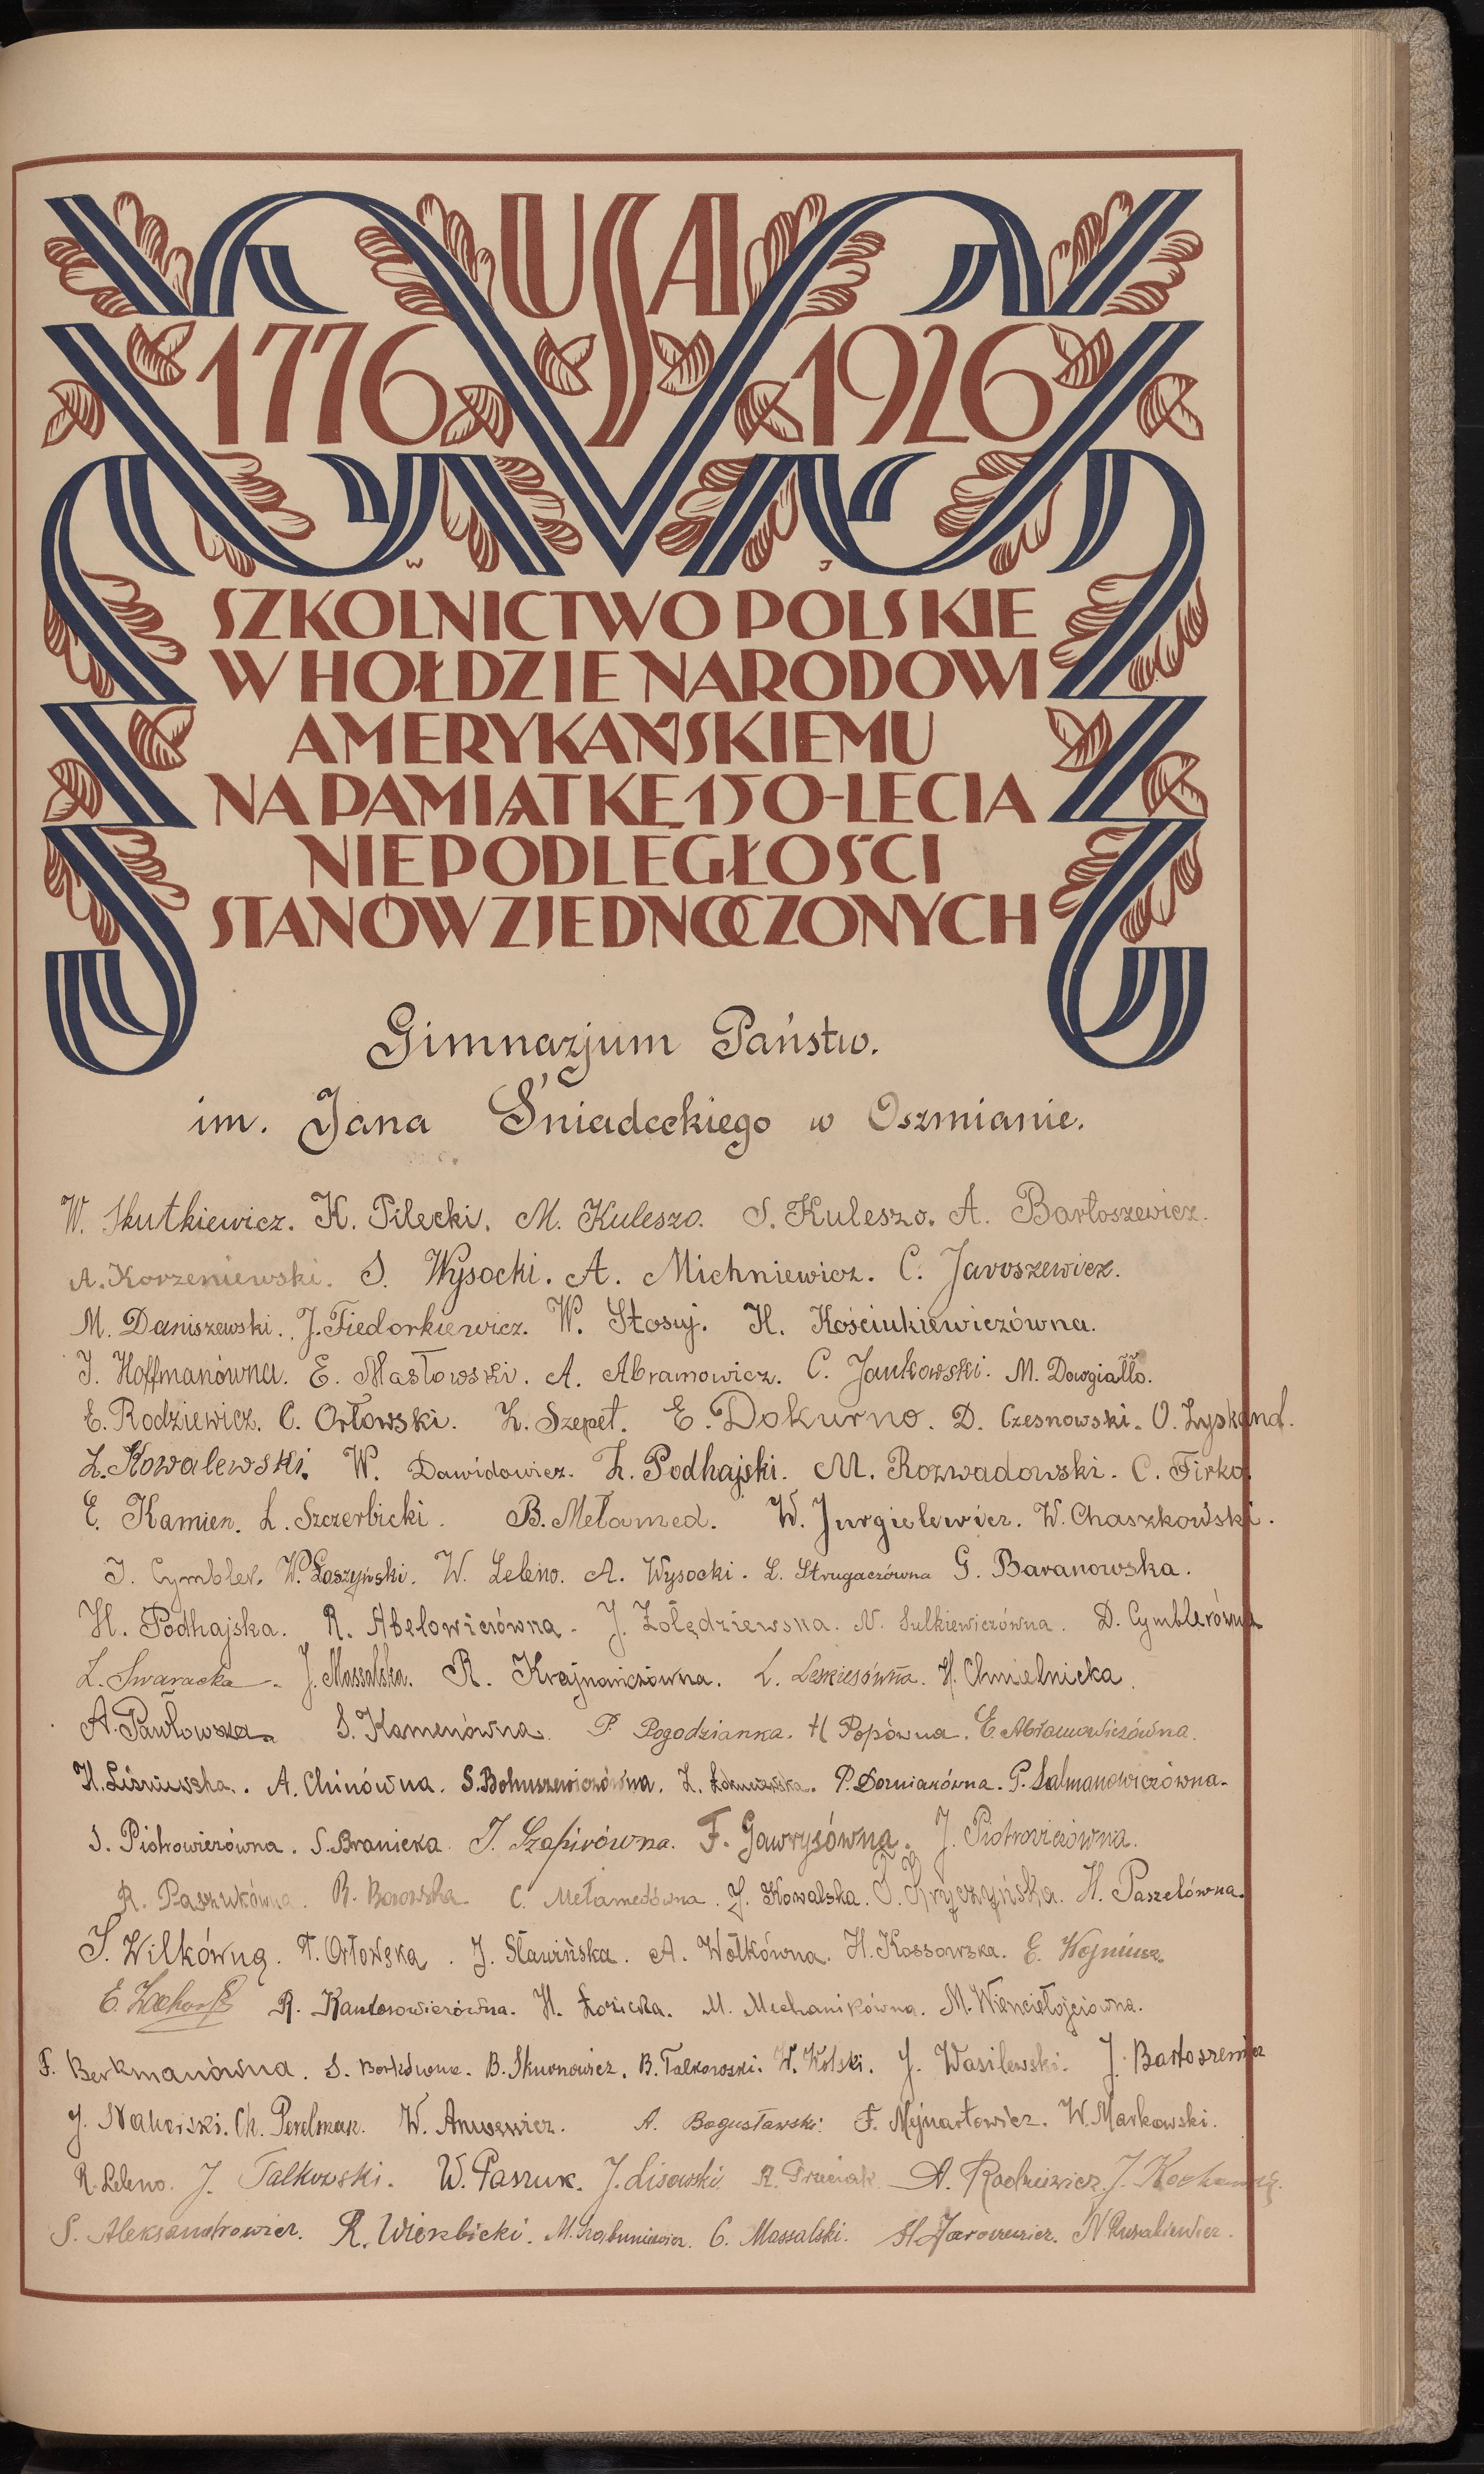 USA
1776 1926
W J
SZKOLNICTWO POLSKIE
W HOŁDZIE NARODOWI
AMERYKAŃSKIEMU
NA PAMIĄTKĘ 150-LECIA
NIEPODLEGŁOŚCI
STANÓW ZJEDNOCZONYCH
Gimnazjum Państw.
im. Jana Śniadeckiego w Oszmianie.
W. Skutkiewicz. K. Pilecki. M. Kuleszo. S. Kuleszo. A. Bartoszewicz.
A. Korzeniewski. S. Wysocki. A. Michniewicz. C. Jaroszewicz.
M. Daniszewski. J. Fiedorkiewicz. W. Stosuj. H. Kościukiewiczówna.
J. Hoffmanówna. E. Masłowski. A. Abramowicz. C. Jankowski. M. Dowgiałło.
E. Rodziewicz. C. Orłowski. Z. Szepet. E. Dokurno. D. Czesnowski. O. Zyskand.
Z. Kowalewski. W. Dawidowicz. Z. Podhajski. M. Rozwadowski. C. Firko.
E. Kamien. L. Szczerbicki. B. Mełamed. W. Jurgielewicz. W. Chaszkowski.
J. Cymbler. W. Łoszyński. W. Leleno. A. Wysocki. L. Strugaczówna G. Baranowska.
H. Podhajska. R. Abelowiczówna. J. Żołędziewska. N. Sulkiewiczówna. D. Cymblerówna
L. Swaracka. J. Massalska. R. Krajnańczówna. L. Leskiesówna. H. Chmielnicka.
A. Pawłowska. S. Kamenówna. P. Pogodzianka. H Popówna. E. Abramowiczówna.
H. Liśniewska. A. Chinówna. S. Bohuszewiczówna. Z. P. Dornianówna. P. Salmanowiczówna.
S. Piotrowiczówna. S. Branicka. J. Szapirówna. F. Gawrysówna. J. Piotrowiczówna.
R. Paszukówna. R. Borowska C. Mełamedówna. J. Kowalska. J. Gryczyńska. H. Paszelówna.
J. Wilkówna. T. Orłowska. J. Sławińska. A. Wołkówna. H. Kossowska. E. Wojniusz.
E. R. Kantorowiczówna. H. Łozicka. M. Mechanikówna. M. Wienciełojciówna.
F. Berkmanówna. S. Borkówna. B. Skurnowicz. B. Talkowski. W. Kolski. J. Wasilewski. J. Bartoszewicz
J. Nahorski. Ch. Perelman. W. A. Bogusławski. F. Mejnartowicz. W. Markowski.
R. Leleno. J. Talkowski. W. Paszuk. J. Lisowski. R. A. Radziewicz. J.
S. Aleksandrowicz. R. Wierzbicki. M. C. Massalski. H. Jarowicz. N Rusakiewicz.